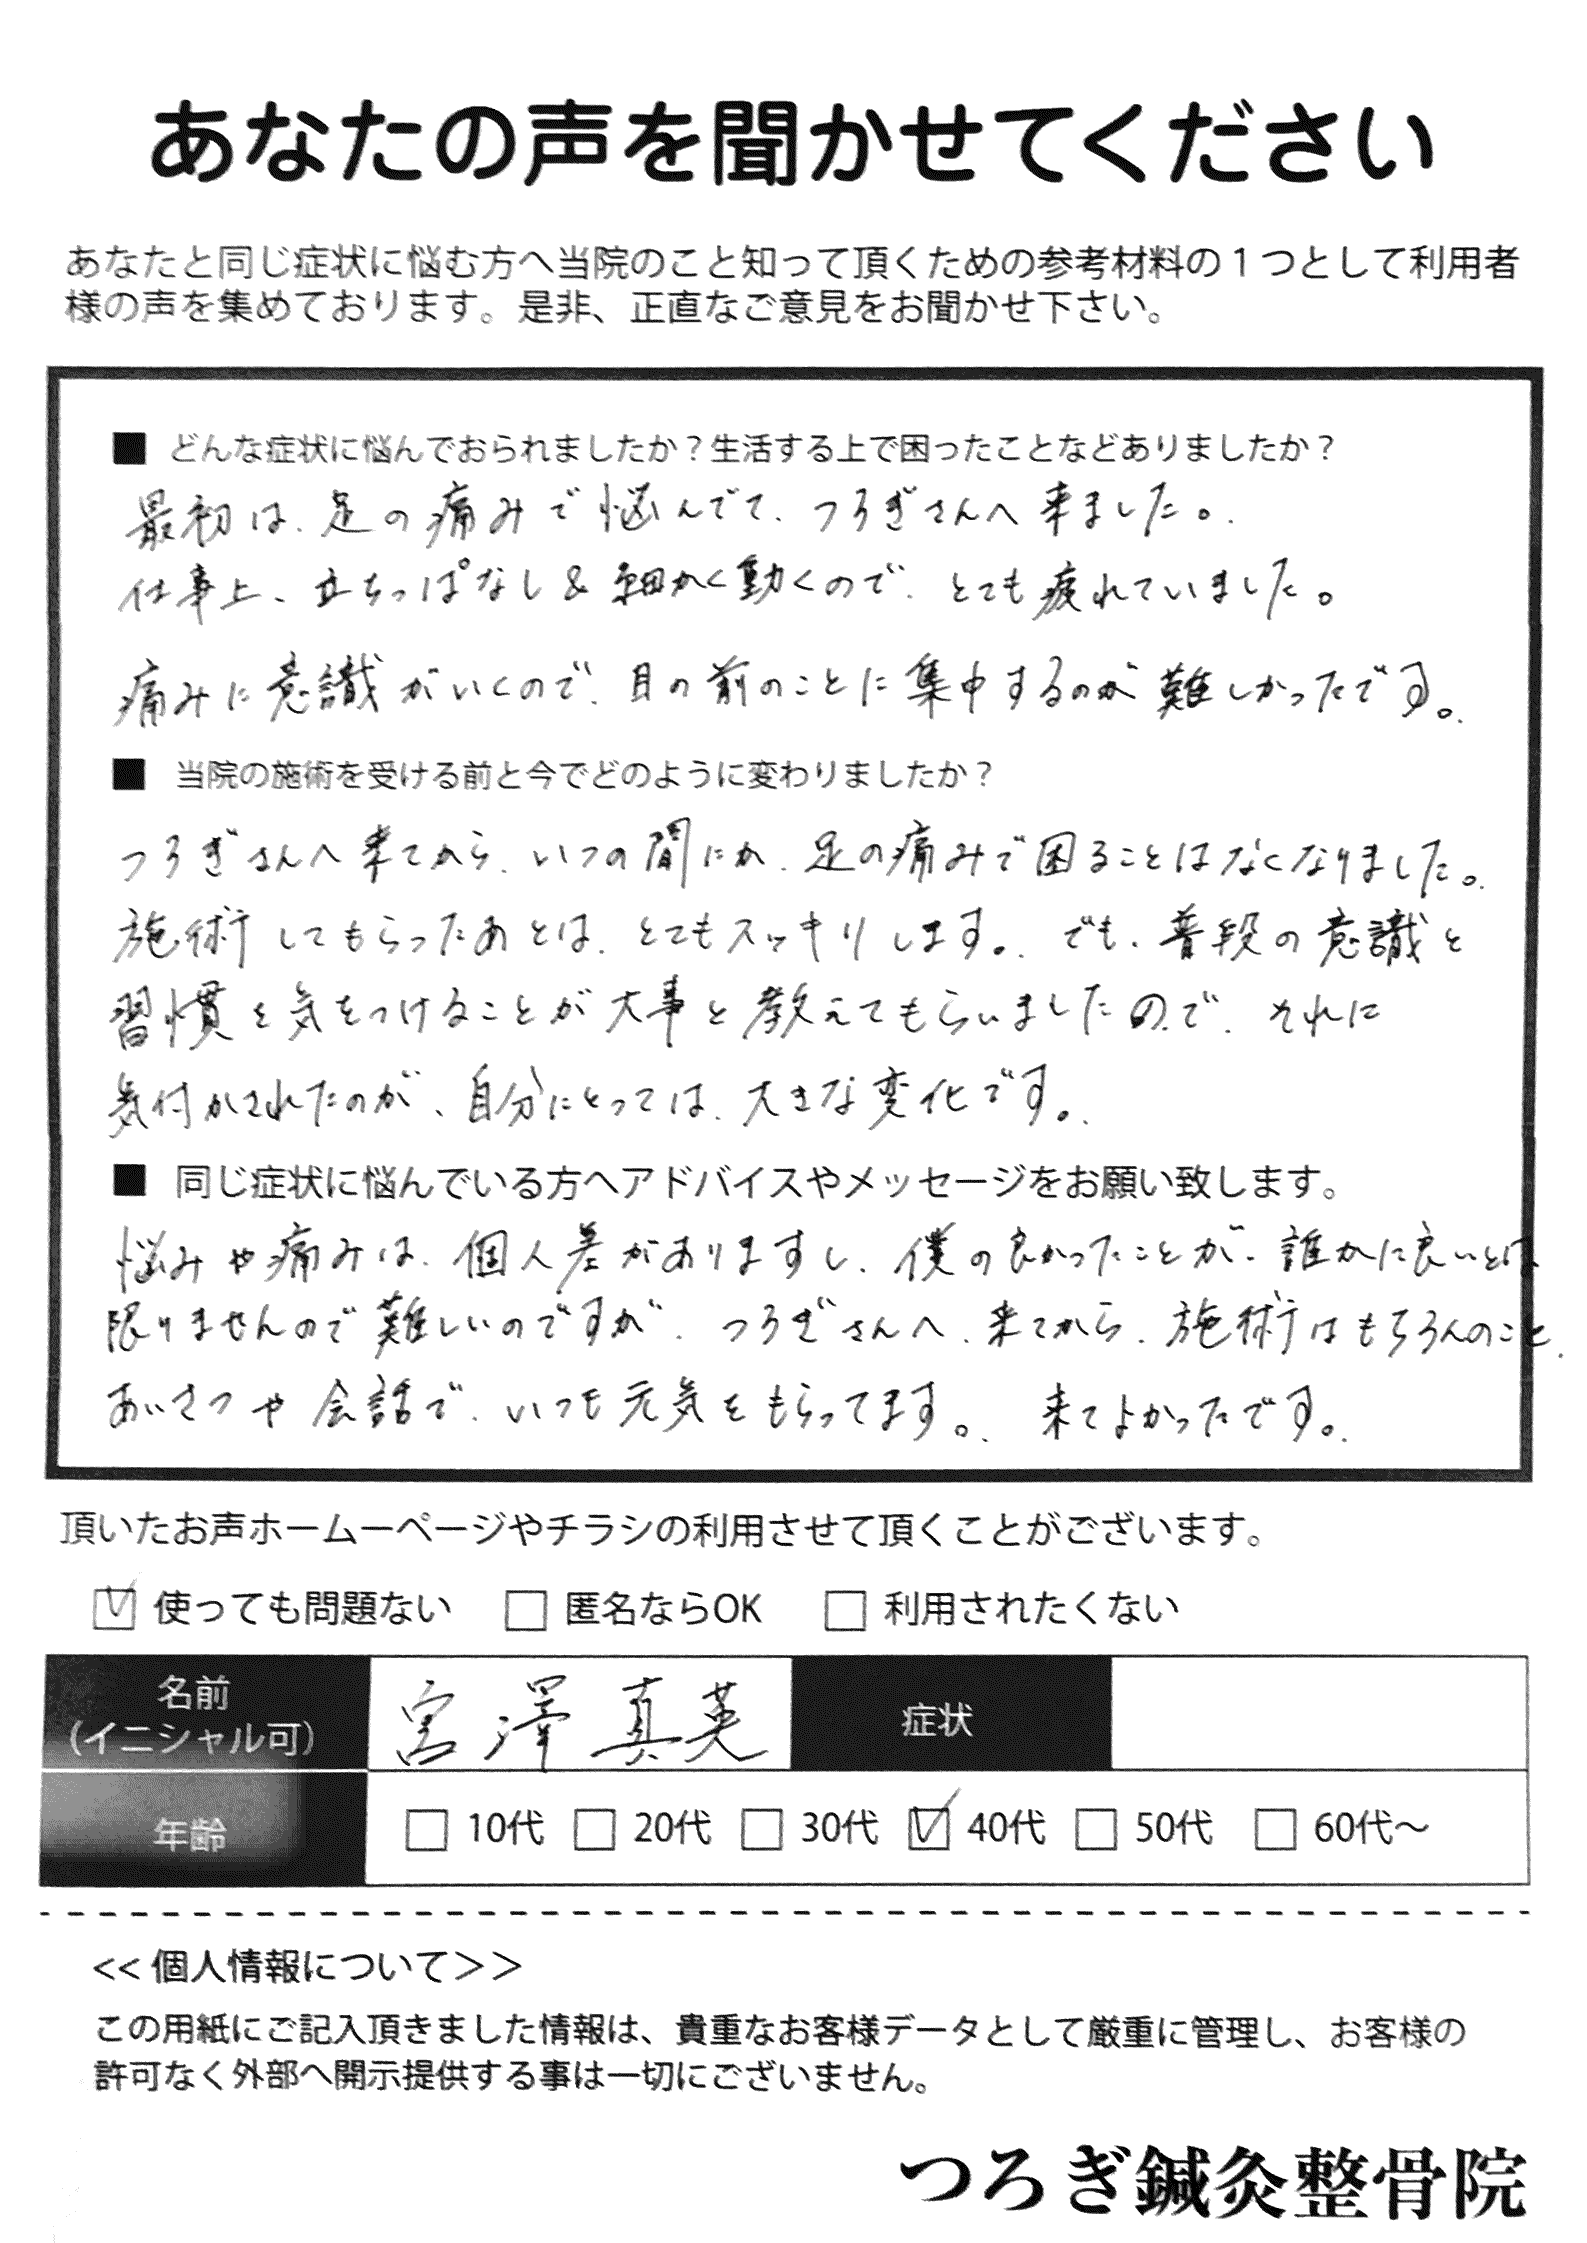 あなたの声を聞かせてください
あなたと同じ症状に悩む方へ当院のこと知って頂くための参考材料の１つとして利用者
様の声を集めております。是非、正直なご意見をお聞かせ下さい。
■ どんな症状に悩んでおられましたか？生活する上で困ったことなどありましたか？
最初は、足の痛みで悩んでて、つろぎさんへ来ました。
仕事上、立ちっぱなし＆細かく動くので、とても疲れていました。
痛みに意識がいくので、目の前のことに集中するのが難しかったです。
■ 当院の施術を受ける前と今でどのように変わりましたか？
つろぎさんへ来てから、いつの間にか、足の痛みで困ることはなくなりました。
施術してもらったあとは、とてもスッキリします。でも、普段の意識と
習慣を気をつけることが大事と教えてもらいましたので、それに
気付かされたのが、自分にとっては、大きな変化です。
■ 同じ症状に悩んでいる方へアドバイスやメッセージをお願い致します。
悩みや痛みは、個人差がありますし、僕の良かったことが、誰かに良いとは、
限りませんので難しいのですが、つろぎさんへ、来てから、施術はもちろんのこと、
あいさつや会話で、いつも元気をもらってます。 来てよかったです。
頂いたお声ホームーページやチラシの利用させて頂くことがございます。
☑ 使っても問題ない □ 匿名ならOK □ 利用されたくない
名前
（イニシャル可） 宮澤 真英 症状
年齢 □ 10代 □ 20代 □ 30代 ☑ 40代 □ 50代 □ 60代～
<< 個人情報について＞＞
この用紙にご記入頂きました情報は、貴重なお客様データとして厳重に管理し、お客様の
許可なく外部へ開示提供する事は一切にございません。
つろぎ鍼灸整骨院